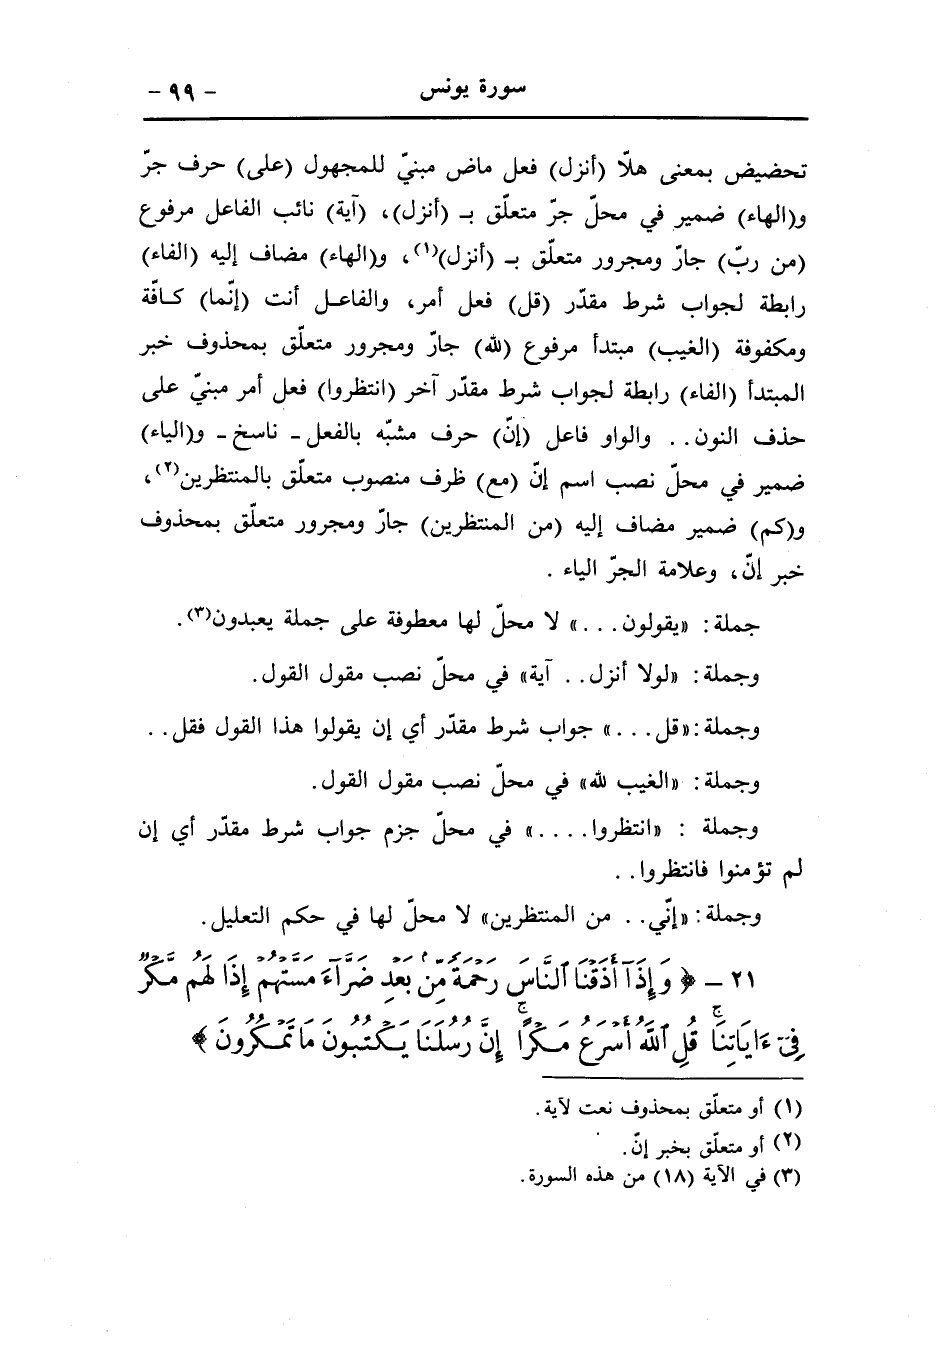 سورة يونس
- ٩٩ -
تحضيض بمعنى هلّا (أنزل) فعل ماض مبنيّ للمجهول (على) حرف جرّ
و(الهاء) ضمير في محلّ جرّ متعلّق بـ (أنزل)، (آية) نائب الفاعل مرفوع
(من ربّ) جارّ ومجرور متعلّق بـ (أنزل)(١)، و(الهاء) مضاف إليه (الفاء)
رابطة لجواب شرط مقدّر (قل) فعل أمر، والفاعل أنت (إنّما) كافّة
ومكفوفة (الغيب) مبتدأ مرفوع (لله) جارّ ومجرور متعلّق بمحذوف خبر
المبتدأ (الفاء) رابطة لجواب شرط مقدّر آخر (انتظروا) فعل أمر مبنيّ على
حذف النون.. والواو فاعل (إنّ) حرف مشبّه بالفعل - ناسخ - و(الياء)
ضمير في محلّ نصب اسم إنّ (مع) ظرف منصوب متعلّق بالمنتظرين(٢)،
و(كم) ضمير مضاف إليه (من المنتظرين) جارّ ومجرور متعلّق بمحذوف
خبر إنّ، وعلامة الجرّ الياء.
جملة: «يقولون...» لا محلّ لها معطوفة على جملة يعبدون(٣).
وجملة: «لولا أنزل.. آية» في محلّ نصب مقول القول.
وجملة: «قل...» جواب شرط مقدّر أي إن يقولوا هذا القول فقل..
وجملة: «الغيب لله» في محلّ نصب مقول القول.
وجملة : «انتظروا....» في محلّ جزم جواب شرط مقدّر أي إن
لم تؤمنوا فانتظروا..
وجملة: «إنّي.. من المنتظرين» لا محلّ لها في حكم التعليل.
٢١ - ﴿ وَإِذَآ أَذَقْنَا ٱلنَّاسَ رَحْمَةً مِّنۢ بَعْدِ ضَرَّآءَ مَسَّتْهُمْ إِذَا لَهُم مَّكْرٌ
فِىٓ ءَايَاتِنَا ۚ قُلِ ٱللَّهُ أَسْرَعُ مَكْرًا ۚ إِنَّ رُسُلَنَا يَكْتُبُونَ مَا تَمْكُرُونَ ﴾
(١) أو متعلّق بمحذوف نعت لآية.
(٢) أو متعلّق بخبر إنّ.
(٣) في الآية (١٨) من هذه السورة.